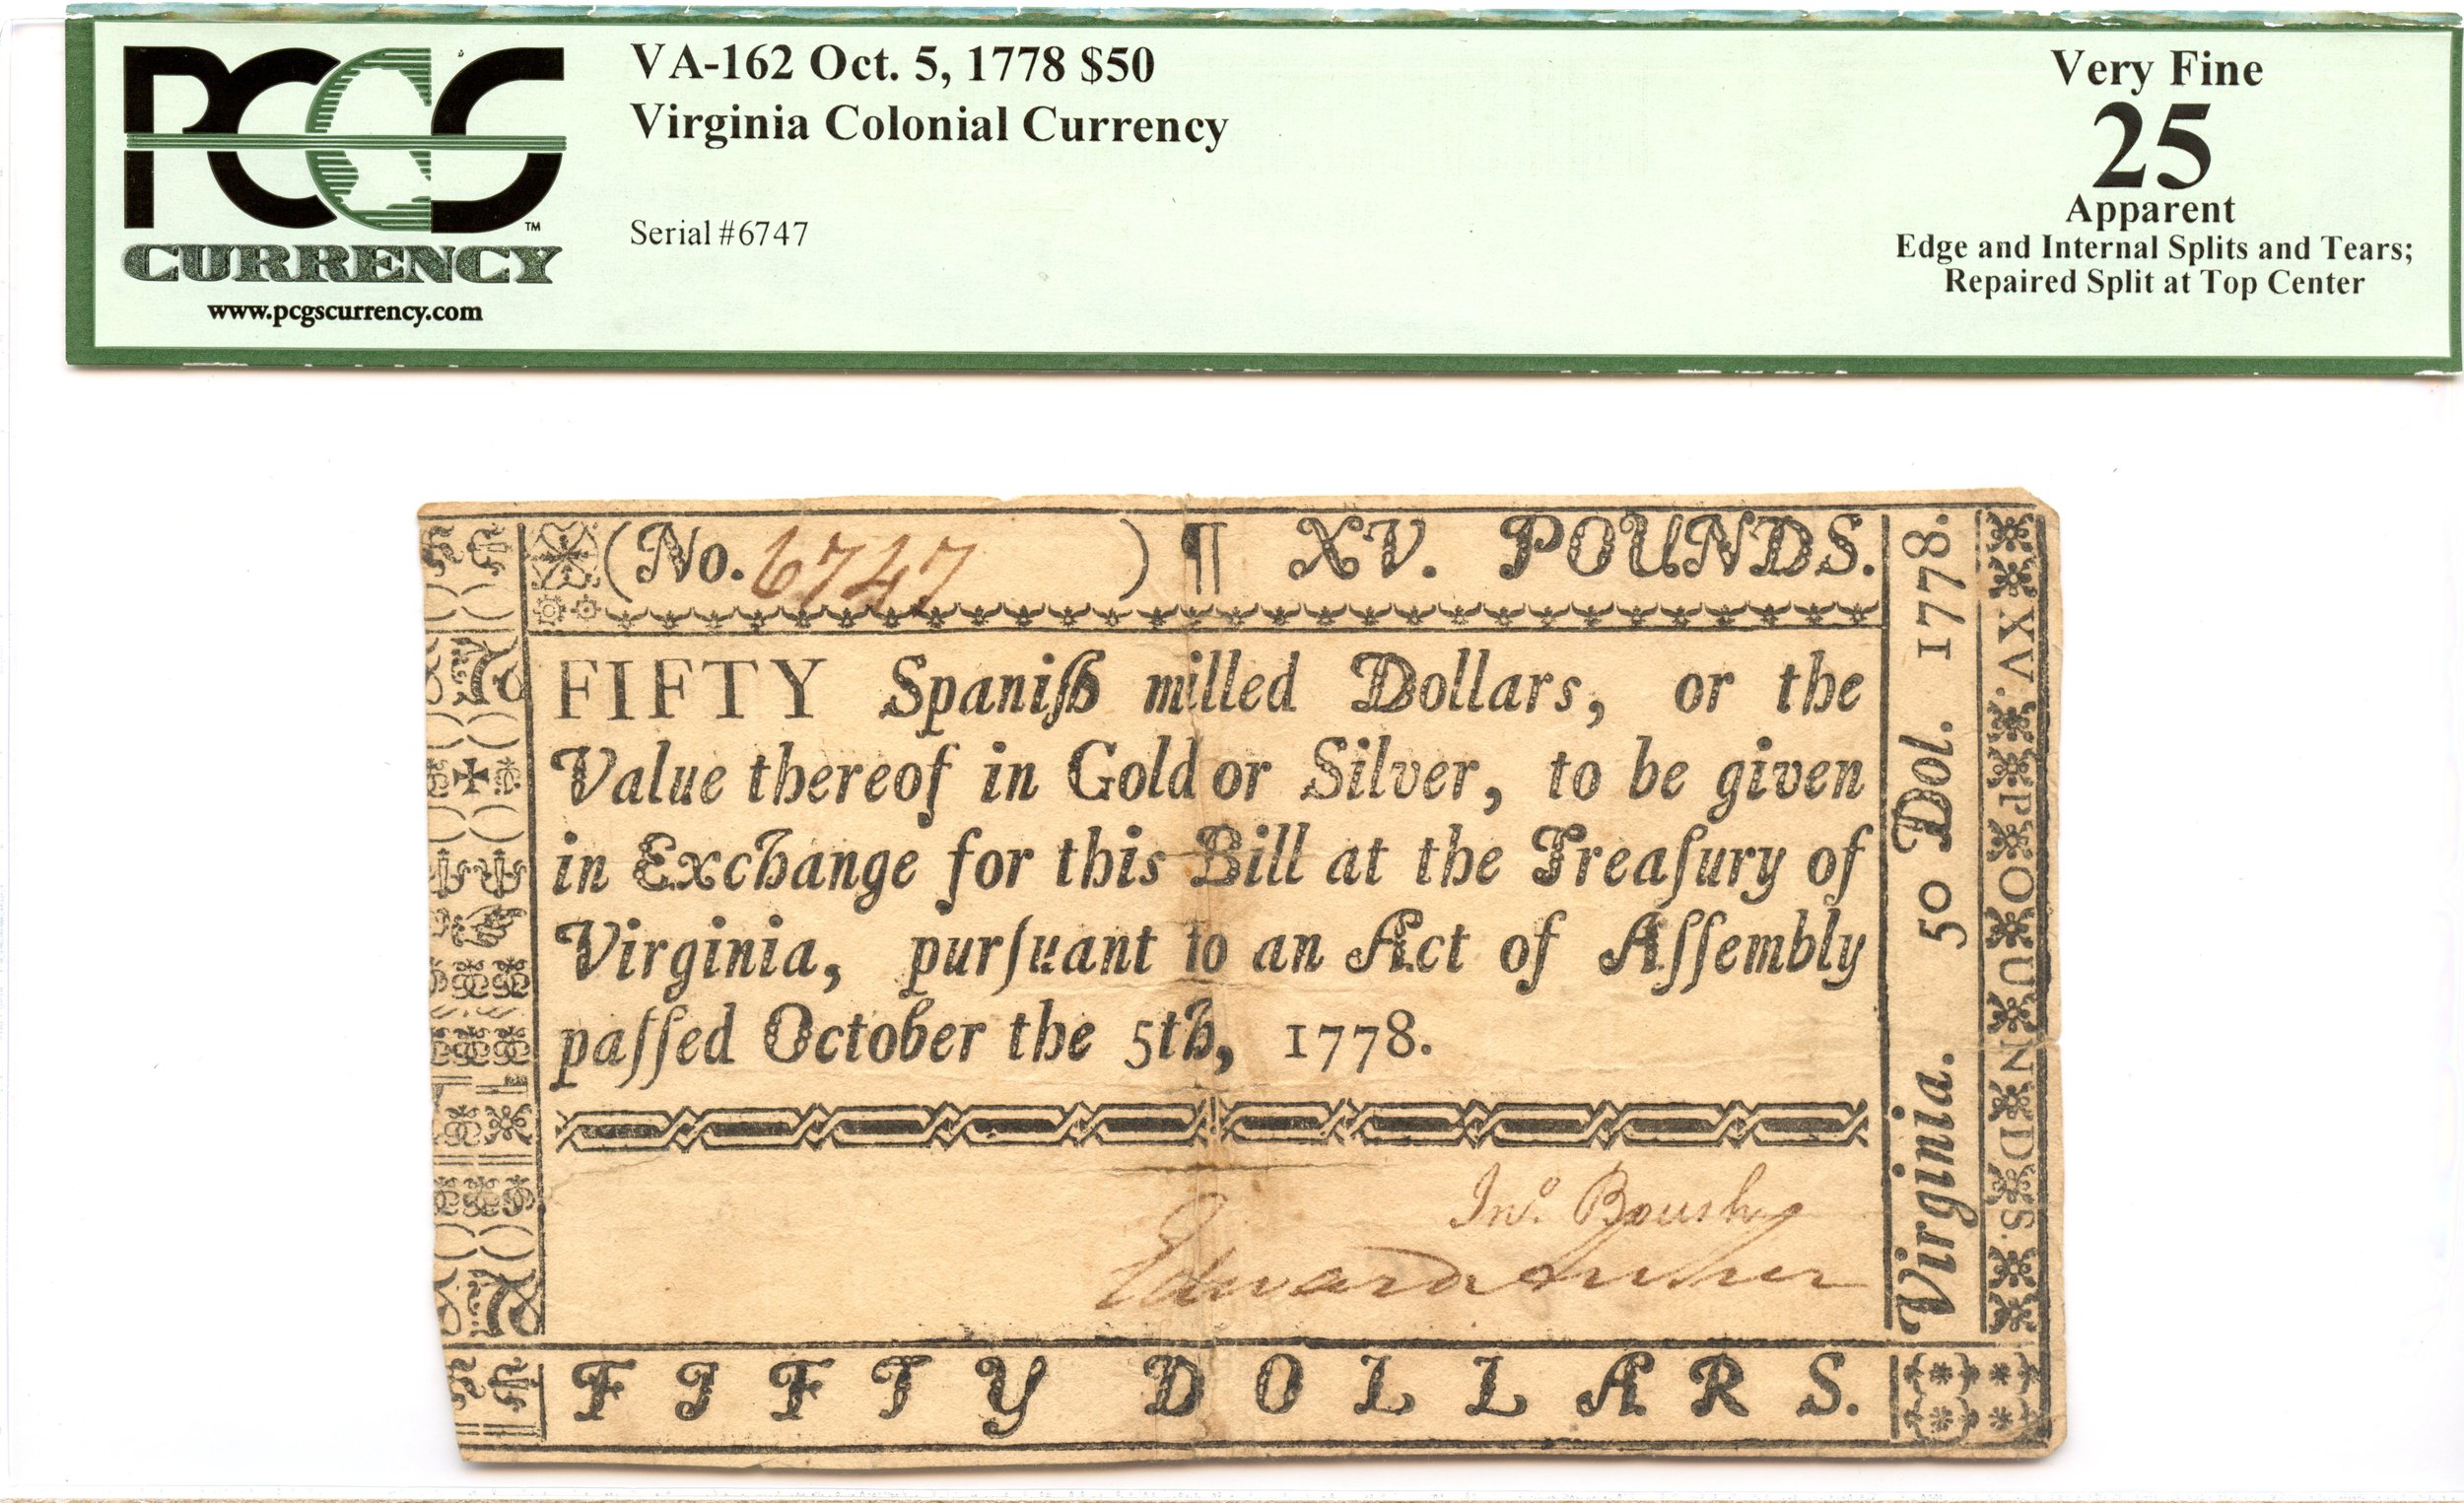 PCGS™
CURRENCY
www.pcgscurrency.com
VA-162 Oct. 5, 1778 $50
Virginia Colonial Currency
Serial #6747
Very Fine
25
Apparent
Edge and Internal Splits and Tears;
Repaired Split at Top Center
(No. 6747 ) ¶ XV. POUNDS.
FIFTY Spaniſh milled Dollars, or the
Value thereof in Gold or Silver, to be given
in Exchange for this Bill at the Treaſury of
Virginia, purſuant to an Act of Aſſembly
paſſed October the 5th, 1778.
Jno. Boush
Edward Archer
FIFTY DOLLARS.
Virginia. 50 Dol. 1778.
XV. POUNDS.